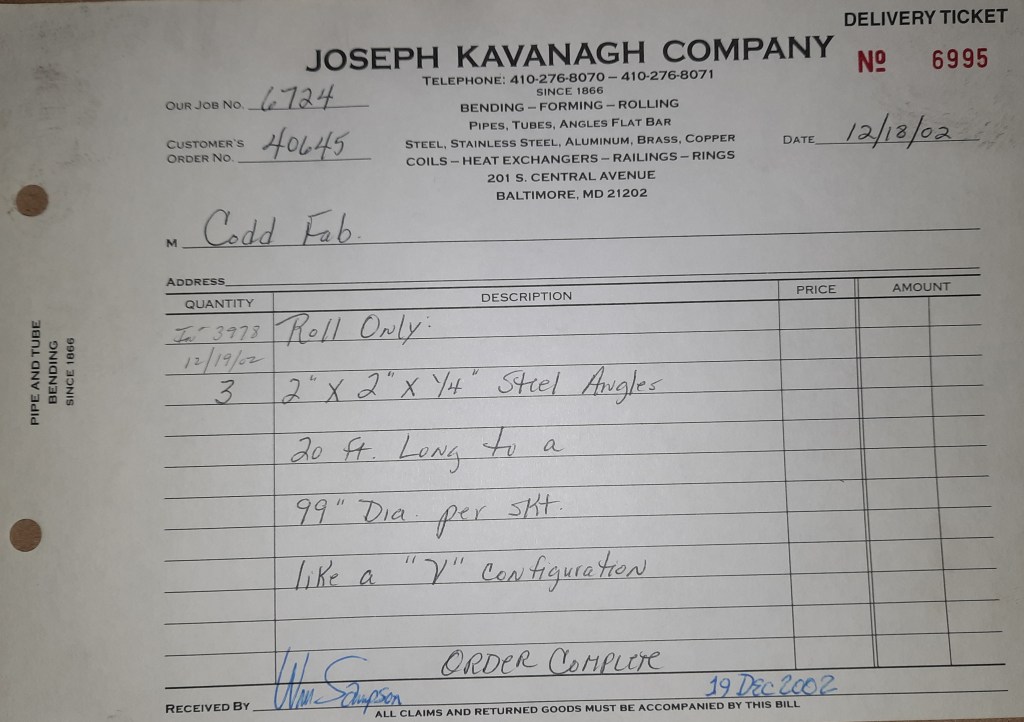 DELIVERY TICKET
JOSEPH KAVANAGH COMPANY
Nº 6995
TELEPHONE: 410-276-8070 – 410-276-8071
SINCE 1866
OUR JOB NO. 6724
BENDING – FORMING – ROLLING
PIPES, TUBES, ANGLES FLAT BAR
CUSTOMER'S ORDER NO. 40645
STEEL, STAINLESS STEEL, ALUMINUM, BRASS, COPPER
DATE 12/18/02
COILS – HEAT EXCHANGERS – RAILINGS – RINGS
201 S. CENTRAL AVENUE
BALTIMORE, MD 21202
M Codd Fab.
ADDRESS
QUANTITY DESCRIPTION PRICE AMOUNT
3978 Roll Only:
12/19/02
3 2" X 2" X 1/4" Steel Angles
20 ft. Long to a
99" Dia. per skt.
like a "V" configuration
ORDER COMPLETE
RECEIVED BY Wm Sampson 19 DEC 2002
ALL CLAIMS AND RETURNED GOODS MUST BE ACCOMPANIED BY THIS BILL
PIPE AND TUBE
BENDING
SINCE 1866